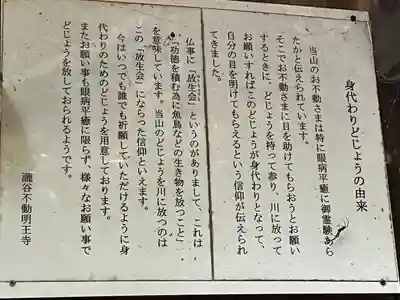 身代わりどじょうの由来
当山のお不動さまは特に眼病平癒に御霊験あら
たかと伝えられています。
そこでお不動さまに目を助けてもらおうとお願い
するときに、どじょうを持って参り、川に放って
お願いすればこのどじょうが身代わりとなって、
自分の目を明けてもらえるという信仰が伝えられ
てきました。
仏事に「放生会」というのがありまして、これは
「功徳を積む為に魚鳥などの生き物を放つこと」
を意味しています。当山のどじょうを川に放つのは
この「放生会」にならった信仰といえます。
今はいつでも誰でも祈願していただけるように身
代わりのためのどじょうを用意しております。
またお願い事も眼病平癒に限らず、様々なお願い事で
どじょうを放しておられるようです。
瀧谷不動明王寺